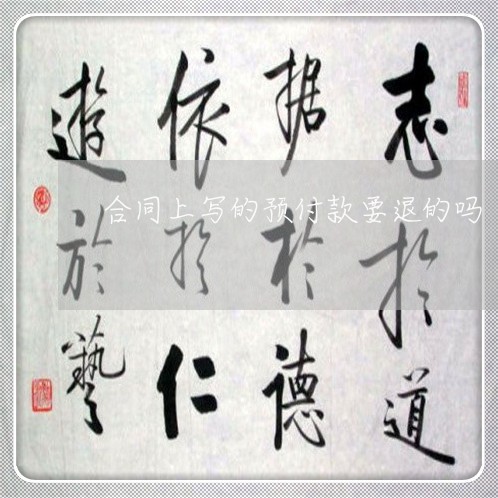 志於道
据於德
依於仁
遊於藝
合同上写的预付款要退的吗